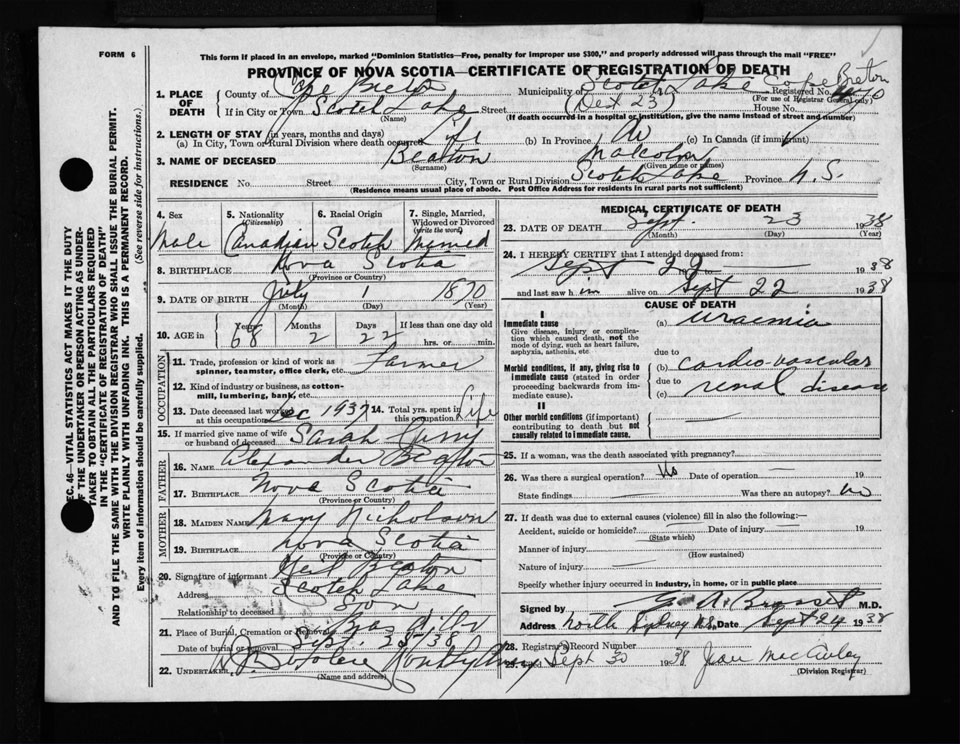 FORM 6
This form if placed in an envelope, marked "Dominion Statistics—Free, penalty for improper use $300," and properly addressed will pass through the mail "FREE"
PROVINCE OF NOVA SCOTIA—CERTIFICATE OF REGISTRATION OF DEATH
1. PLACE OF DEATH
County of Cape Breton Municipality of Scotch Lake Cape Breton Registered No.
(For use of Registrar General only)
If in City or Town Scotch Lake Street (Dist 23) House No.
(Name) (If death occurred in a hospital or institution, give the name instead of street and number)
2. LENGTH OF STAY (in years, months and days)
(a) In City, Town or Rural Division where death occurred Life (b) In Province (c) In Canada (if immigrant)
3. NAME OF DECEASED Beaton Malcolm
(Surname) (Given name or names)
RESIDENCE No. Street City, Town or Rural Division Scotch Lake Province N.S.
(Residence means usual place of abode. Post Office Address for residents in rural parts not sufficient)
4. Sex Male
5. Nationality (Citizenship) Canadian
6. Racial Origin Scotch
7. Single, Married, Widowed or Divorced (write the word) Married
8. BIRTHPLACE Nova Scotia
(Province or Country)
9. DATE OF BIRTH July 1 1870
(Month) (Day) (Year)
10. AGE in Years 68 Months 2 Days 22 If less than one day old hrs. or min.
OCCUPATION
11. Trade, profession or kind of work as spinner, teamster, office clerk, etc. Farmer
12. Kind of industry or business, as cotton-mill, lumbering, bank, etc.
13. Date deceased last worked at this occupation Dec 1937 14. Total yrs. spent in this occupation Life
15. If married give name of wife or husband of deceased Sarah Curry
FATHER
16. NAME Alexander Beaton
17. BIRTHPLACE Nova Scotia
(Province or Country)
MOTHER
18. MAIDEN NAME Mary Nicholson
19. BIRTHPLACE Nova Scotia
(Province or Country)
20. Signature of informant Neil Beaton
Address Scotch Lake
Relationship to deceased Son
21. Place of Burial, Cremation or Removal
Date of burial or removal Sept.
22. UNDERTAKER
(Name and address)
MEDICAL CERTIFICATE OF DEATH
23. DATE OF DEATH Sept. 23 1938
(Month) (Day) (Year)
24. I HEREBY CERTIFY that I attended deceased from:
Sept 22 1938
and last saw him alive on Sept 22 1938
CAUSE OF DEATH
I
Immediate cause
Give disease, injury or complication which caused death, not the mode of dying, such as heart failure, asphyxia, asthenia, etc
(a) uraemia
due to
Morbid conditions, if any, giving rise to immediate cause (stated in order proceeding backwards from immediate cause).
(b) cardio-vascular
due to
(c) renal disease
II
Other morbid conditions (if important) contributing to death but not causally related to immediate cause.
25. If a woman, was the death associated with pregnancy?
26. Was there a surgical operation? No Date of operation 19
State findings Was there an autopsy? No
27. If death was due to external causes (violence) fill in also the following:—
Accident, suicide or homicide? Date of injury 19
(State which)
Manner of injury
(How sustained)
Nature of injury
Specify whether injury occurred in industry, in home, or in public place
Signed by M.D.
Address North Sydney N.S. Date Sept 24 1938
28. Registrar's Record Number
Sept 30 1938 Jean MacAuley
(Division Registrar)
SEC. 46—VITAL STATISTICS ACT MAKES IT THE DUTY
OF THE UNDERTAKER OR PERSON ACTING AS UNDER-
TAKER TO OBTAIN ALL THE PARTICULARS REQUIRED
IN THE "CERTIFICATE OF REGISTRATION OF DEATH"
AND TO FILE THE SAME WITH THE DIVISION REGISTRAR WHO SHALL ISSUE THE BURIAL PERMIT.
WRITE PLAINLY WITH UNFADING INK. THIS IS A PERMANENT RECORD.
Every item of information should be carefully supplied. (See reverse side for instructions.)